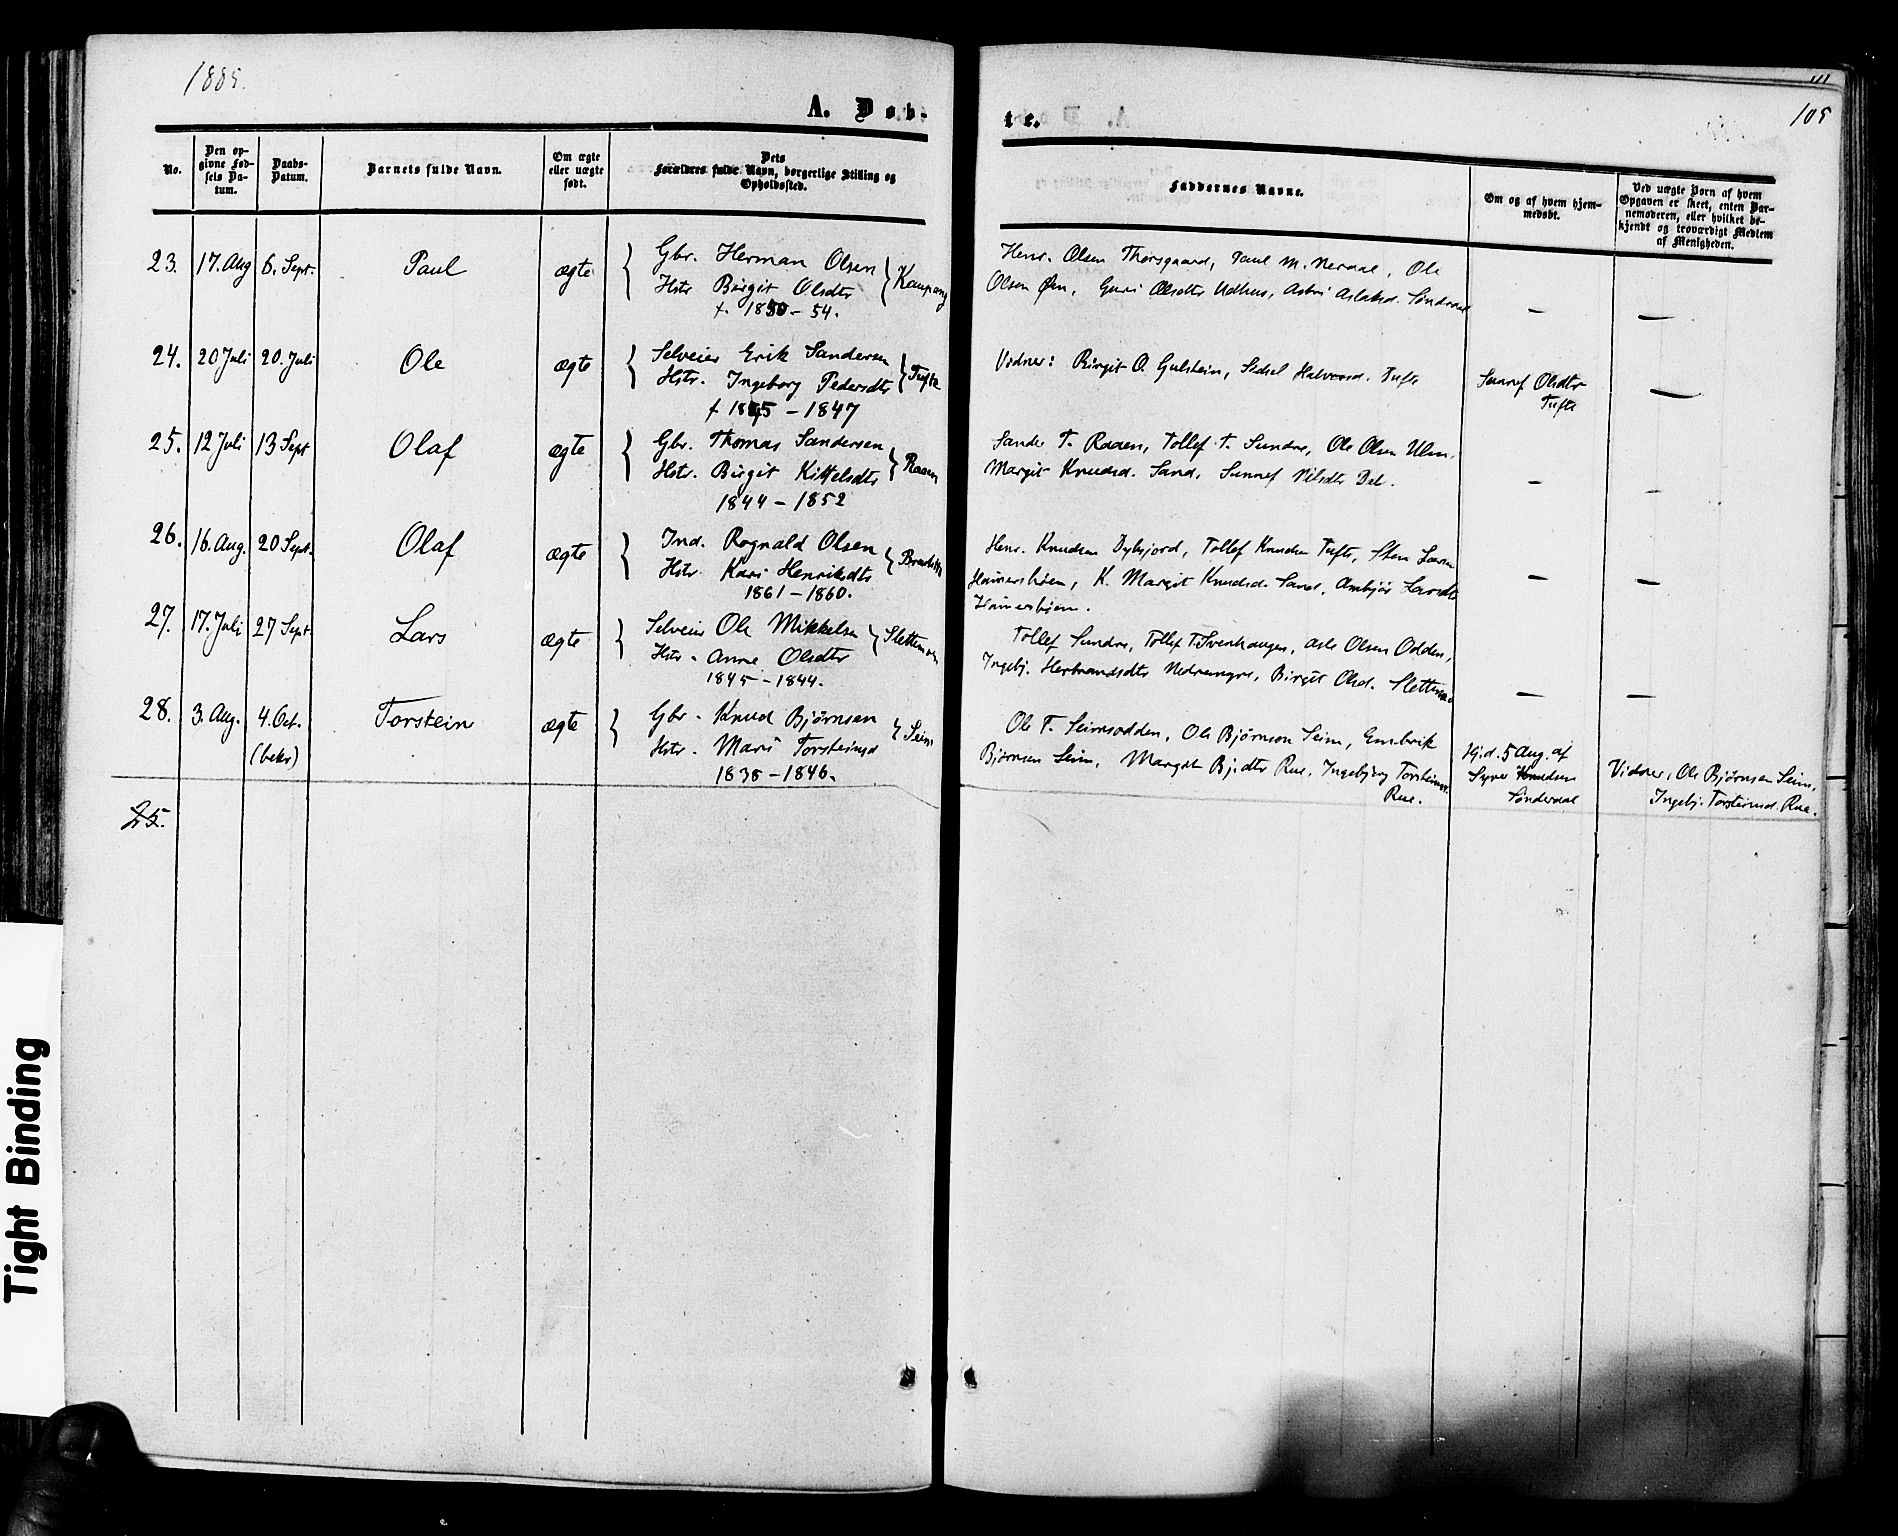 1885.
105
A. Døb-
te.
No.
Den op-
givne Fød-
sels Da-
tum.
Daabs-
Datum.
Barnets fulde Navn.
Om ægte
eller uægte
født.
Dets
Forældres fulde Navn, borgerlige Stilling og
Opholdssted.
Faddernes Navne.
Om og af hvem hjem-
medøbt.
Ved uægte Børn af hvem
Opgaven er skeet, enten Bar-
nemoderen, eller hvilket be-
kjendt og troværdigt Medlem
af Menigheden.
23. 17. Aug 6. Sept. Paul ægte Gbr. Herman Olsen
Hstr Birgit Olsdtr Kaupang
+. 1850 - 54.
Henr. Olsen Thorsgaard, Paul M. Neraal, Ole
Olsen Øen, Guri Olsdtr Udhus, Astri Aslaksd. Sønderaal
— —
24. 20 Juli 20. Juli Ole ægte Selveier Erik Sandersen
Hstr. Ingeborg Pedersdtr Tufte
+ 1845 - 1847
Vidner: Birgit O. Gulstein, Sidsel Halvorsd. Tufte
Sunnef Olsdtr
Tufte
—
25. 12 Juli 13 Sept Olaf ægte Gbr. Thomas Sandersen
Hstr. Birgit Kittelsdtr Raaen
1844 - 1852
Sander T. Raaen, Tollef T. Sundre, Ole Olsen Ulsn.
Margit Knudsd. Sand, Sunnef Nilsdtr Del.
— —
26. 16. Aug. 20 Sept. Olaf ægte Ind. Rognald Olsen
Hstr. Kari Henriksdtr
1861 - 1860.
Henr. Knudsen Dyksjord, Tollef Knudsen Tufte, Sten Larsen
K. Margit Knudsd. Sand, Ambjør Larsdtr
— —
27. 17. Juli 27 Sept. Lars ægte Selveier Ole Mikkelsen
Hstr. Anne Olsdtr Slettemoen
1845 - 1844.
Tollef Sundre, Tollef T. Svenhaugen, Asle Olsen Odden,
Ingebj. Herbrandsdtr Nedrengre, Birgit Olsd. Slettemo
— —
28. 3. Aug. 4. Oct. Torstein ægte Gbr. Knud Bjørnsen
(bekr) Hstr. Mari Torsteinsd Seim
1838 - 1846.
Ole T. Seimsodden, Ole Bjørnson Seim, Embrik
Bjørnsen Seim, Margit Bj.dtr Rue, Ingebjørg Torsteinsd.
Rue.
Hj.d. 5 Aug. af
Syver Knudsen
Sønderaal
Vidner, Ole Bjørnsen Seim,
Ingebj. Torsteinsd. Rue.
25.
Tight Binding